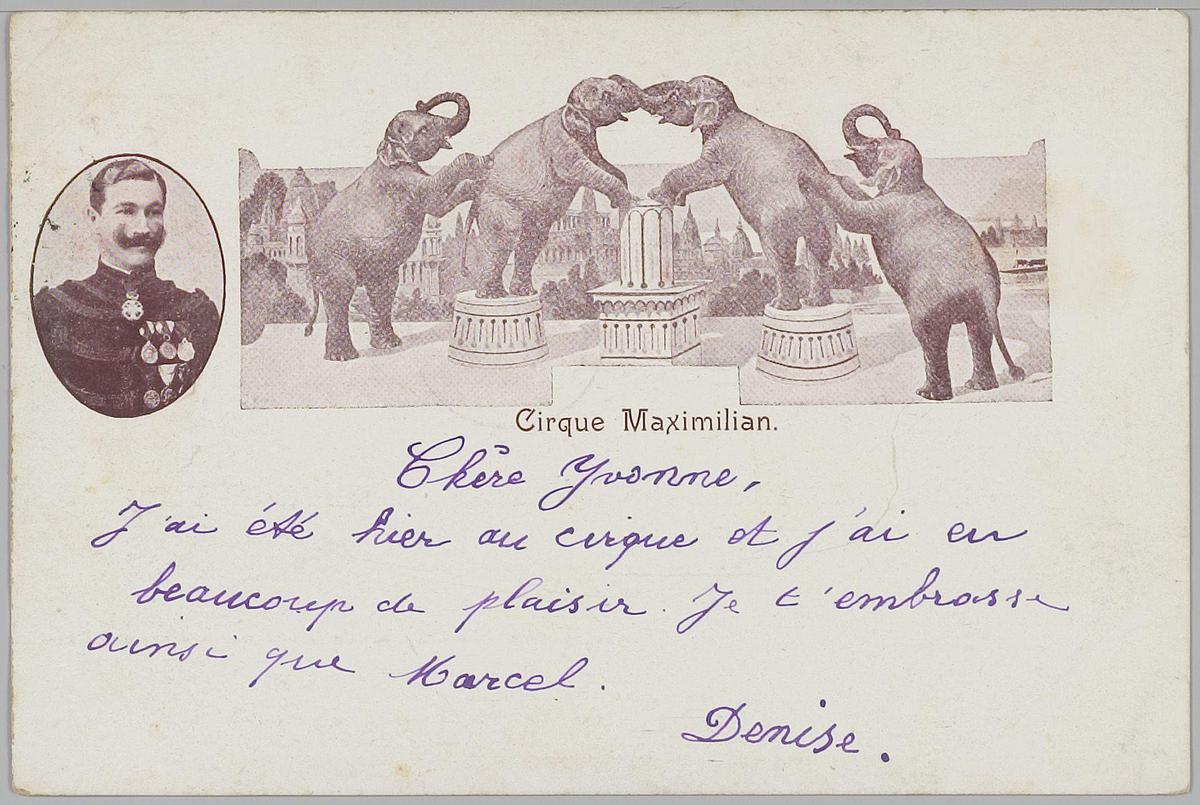 Cirque Maximilian.
Chère Yvonne,
J'ai été hier au cirque et j'ai eu
beaucoup de plaisir. Je t'embrasse
ainsi que Marcel.
Denise.